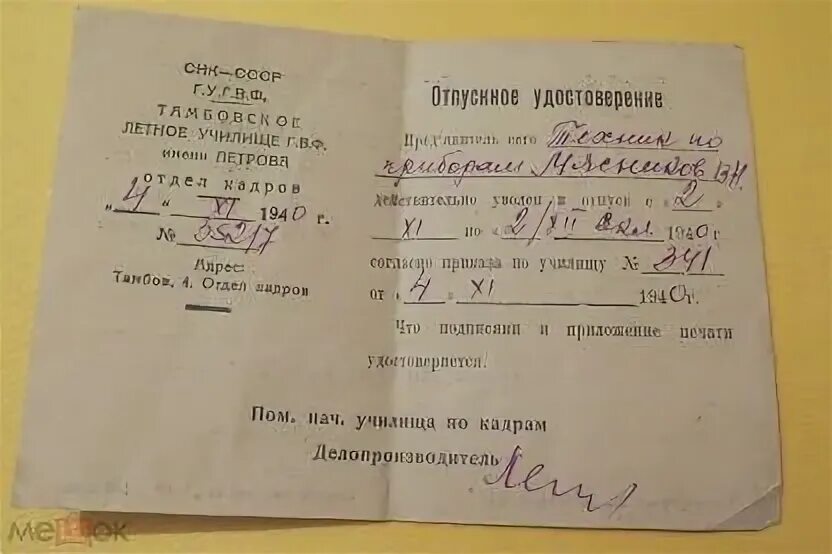 СНК—СССР
Г.У.Г.В.Ф.
ТАМБОВСКОЕ
ЛЕТНОЕ УЧИЛИЩЕ Г.В.Ф.
имени ПЕТРОВА
отдел кадров
„4“ XI 1940 г.
№ 352/7
Адрес:
Тамбов, 4. Отдел кадров
Отпускное удостоверение
Пред'явитель сего Техник по
приборам Мясников ВН.
действительно уволен в отпуск с «2»
XI по «2/XII вкл. 1940 г
согласно приказа по училищу № 341
от «4» XI 1940 г.
Что подписями и приложение печати
удостоверяется.
Пом. нач. училища по кадрам
Делопроизводитель
мешок